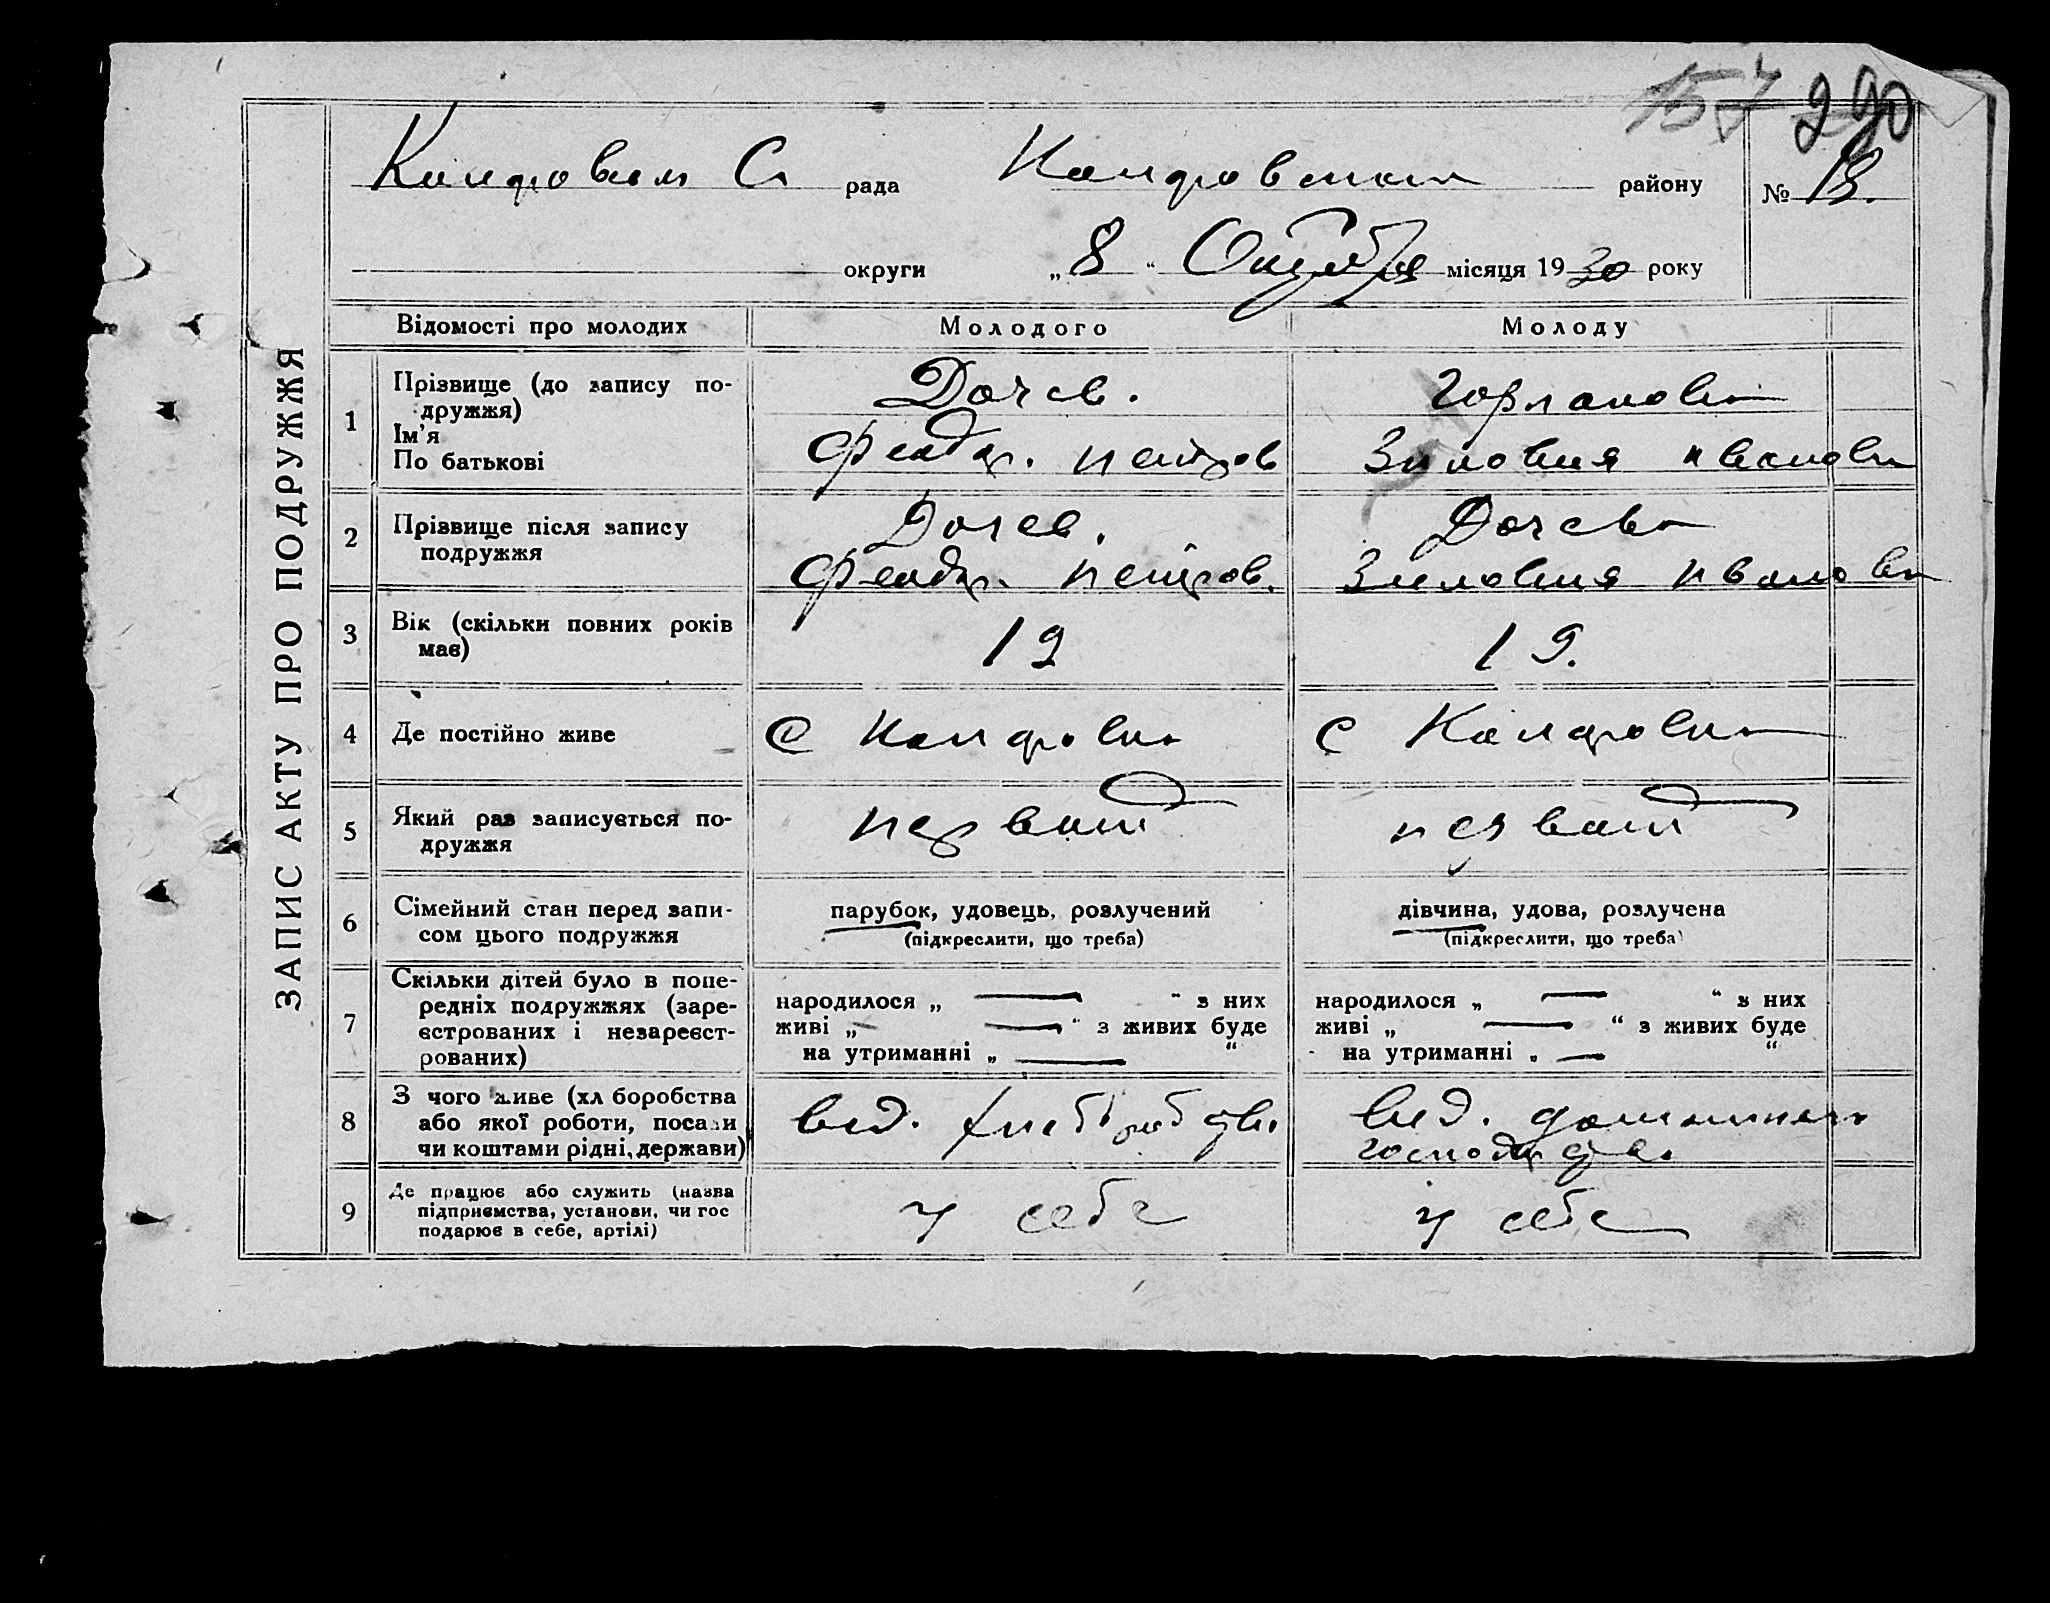 157 290
рада района № 18.
округи „ 8 “ Октября місяця 1930 року
ЗАПИС АКТУ ПРО ПОДРУЖЖЯ
Відомості про молодих Молодого Молоду
1 Прізвище (до запису по-
дружжя)
Ім'я
По батькові
Дочев.
Феодр. петров
Зиновия
2 Прізвище після запису
подружжя
Дочев.
Феодр. петров.
Дочева
Зиновия иванова
3 Вік (скільки повних років
має)
19 19.
4 Де постійно живе
с
с
5 Який раз записується по-
дружжя
первый первый
6 Сімейний стан перед запи-
сом цього подружжя
парубок, удовець, розлучений
(підкреслити, що треба)
дівчина, удова, розлучена
(підкреслити, що треба)
7 Скільки дітей було в попе-
редніх подружжях (заре-
єстрованих і незареєст-
рованих)
народилося „ — “ з них
живі „ — “ з живих буде
на утриманні „ — “
народилося „ — “ з них
живі „ — “ з живих буде
на утриманні „ — “
8 З чого живе (хл боробства
або якої роботи, посади
чи коштами рідні, держави)
від.
від.
9 Де працює або служить (назва
підприємства, установи, чи гос
подарює в себе, артілі)
у себе у себе